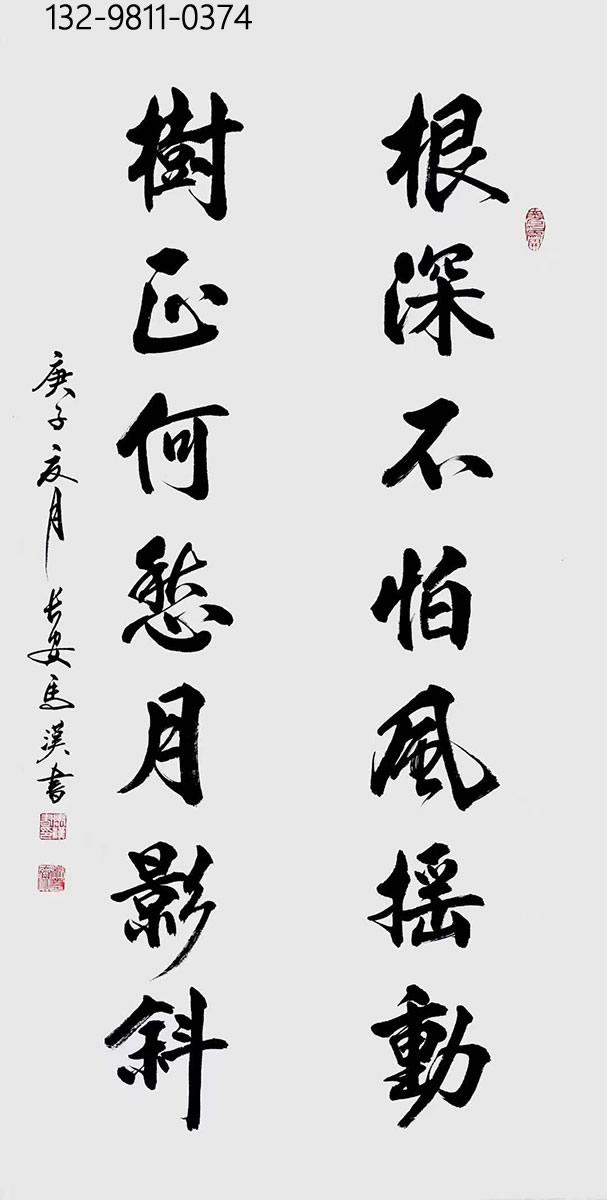 132-9811-0374
根深不怕風摇動
樹正何愁月影斜
庚子夏月長安馬漢書